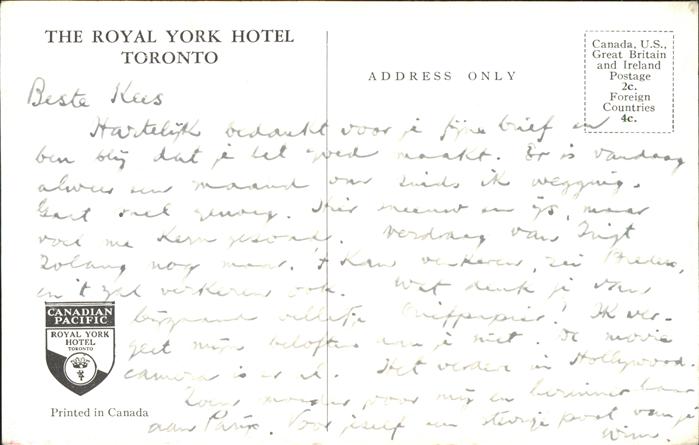 THE ROYAL YORK HOTEL
TORONTO
ADDRESS ONLY
Canada, U.S.,
Great Britain
and Ireland
Postage
2c.
Foreign
Countries
4c.
Beste Kees
Hartelijk bedankt voor je fijne brief en
ben blij dat je het goed maakt. Er is vandaag
alweer een maand om sinds ik wegging.
Gaat snel genoeg. Hier sneeuw en ijs, maar
voel me kern gezond. van
Zolang nog maar. 't Kan verkeren, zei Bredero,
en 't zal verkeren ook. Wat denk je van
velletje briefpapier! Ik ver-
geet mijn beloften aan je niet. De movie
camera is er al. Het verdere in Hollywood.
Zoen moeder voor mij en herinner haar
aan Parijs. Voor jezelf een stevige poot van je
Wim.
CANADIAN
PACIFIC
ROYAL YORK
HOTEL
TORONTO
Printed in Canada